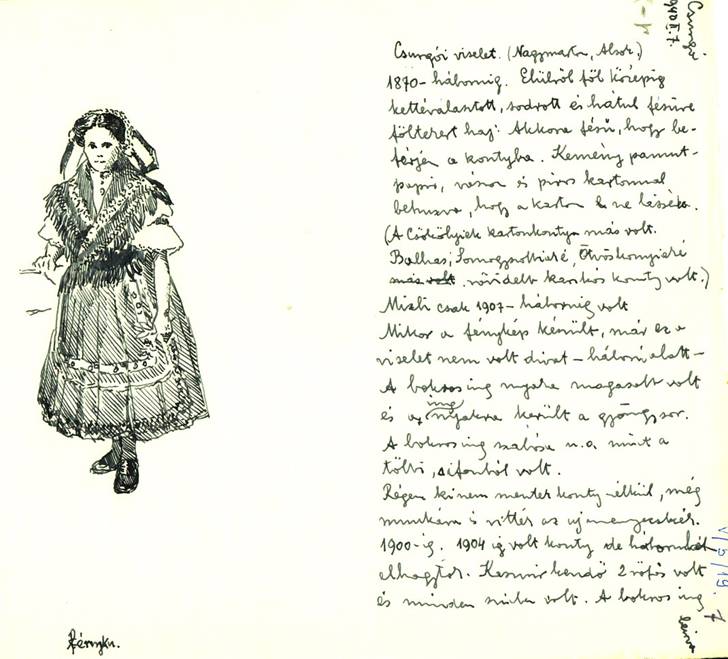 Csurgó
1940.II.7.
Csurgói viselet. (Nagymarton, Alsok.)
1870- háborúig. Elülről föl középig
kettéválasztott, sodrott és hátul fésűre
föltekert haj. Akkora fésű, hogy be-
férjen a kontyba. Kemény pamut-
papir, vászon és piros kartonnal
behuzva, hogy a karton ki ne lássék.
(A Csökölyiek kartonkontya más volt.
Bolhás, Somogyszobiaké, Ötvöskonyiaké
más volt rövidebb karikós konty volt.)
Miszli csak 1907- háborúig volt
Mikor a fénykép készült, már ez a
viselet nem volt divat - háború alatt -
A bokros ing nyaka magasabb volt
és az ing nyakra került a gyöngysor.
A bokros ing szabása u.a. mint a
többi, sifonból volt.
Régen ki nem mentek konty nélkül, még
munkára is vitték az ujmenyecskék.
1900-ig. 1904 ig volt konty de háborunkkal
elhagyták. Kasmir kendő 2 rőfös volt
és minden szinben volt. A bokros ing
leirva
V/5/19.
7
Fénykép.